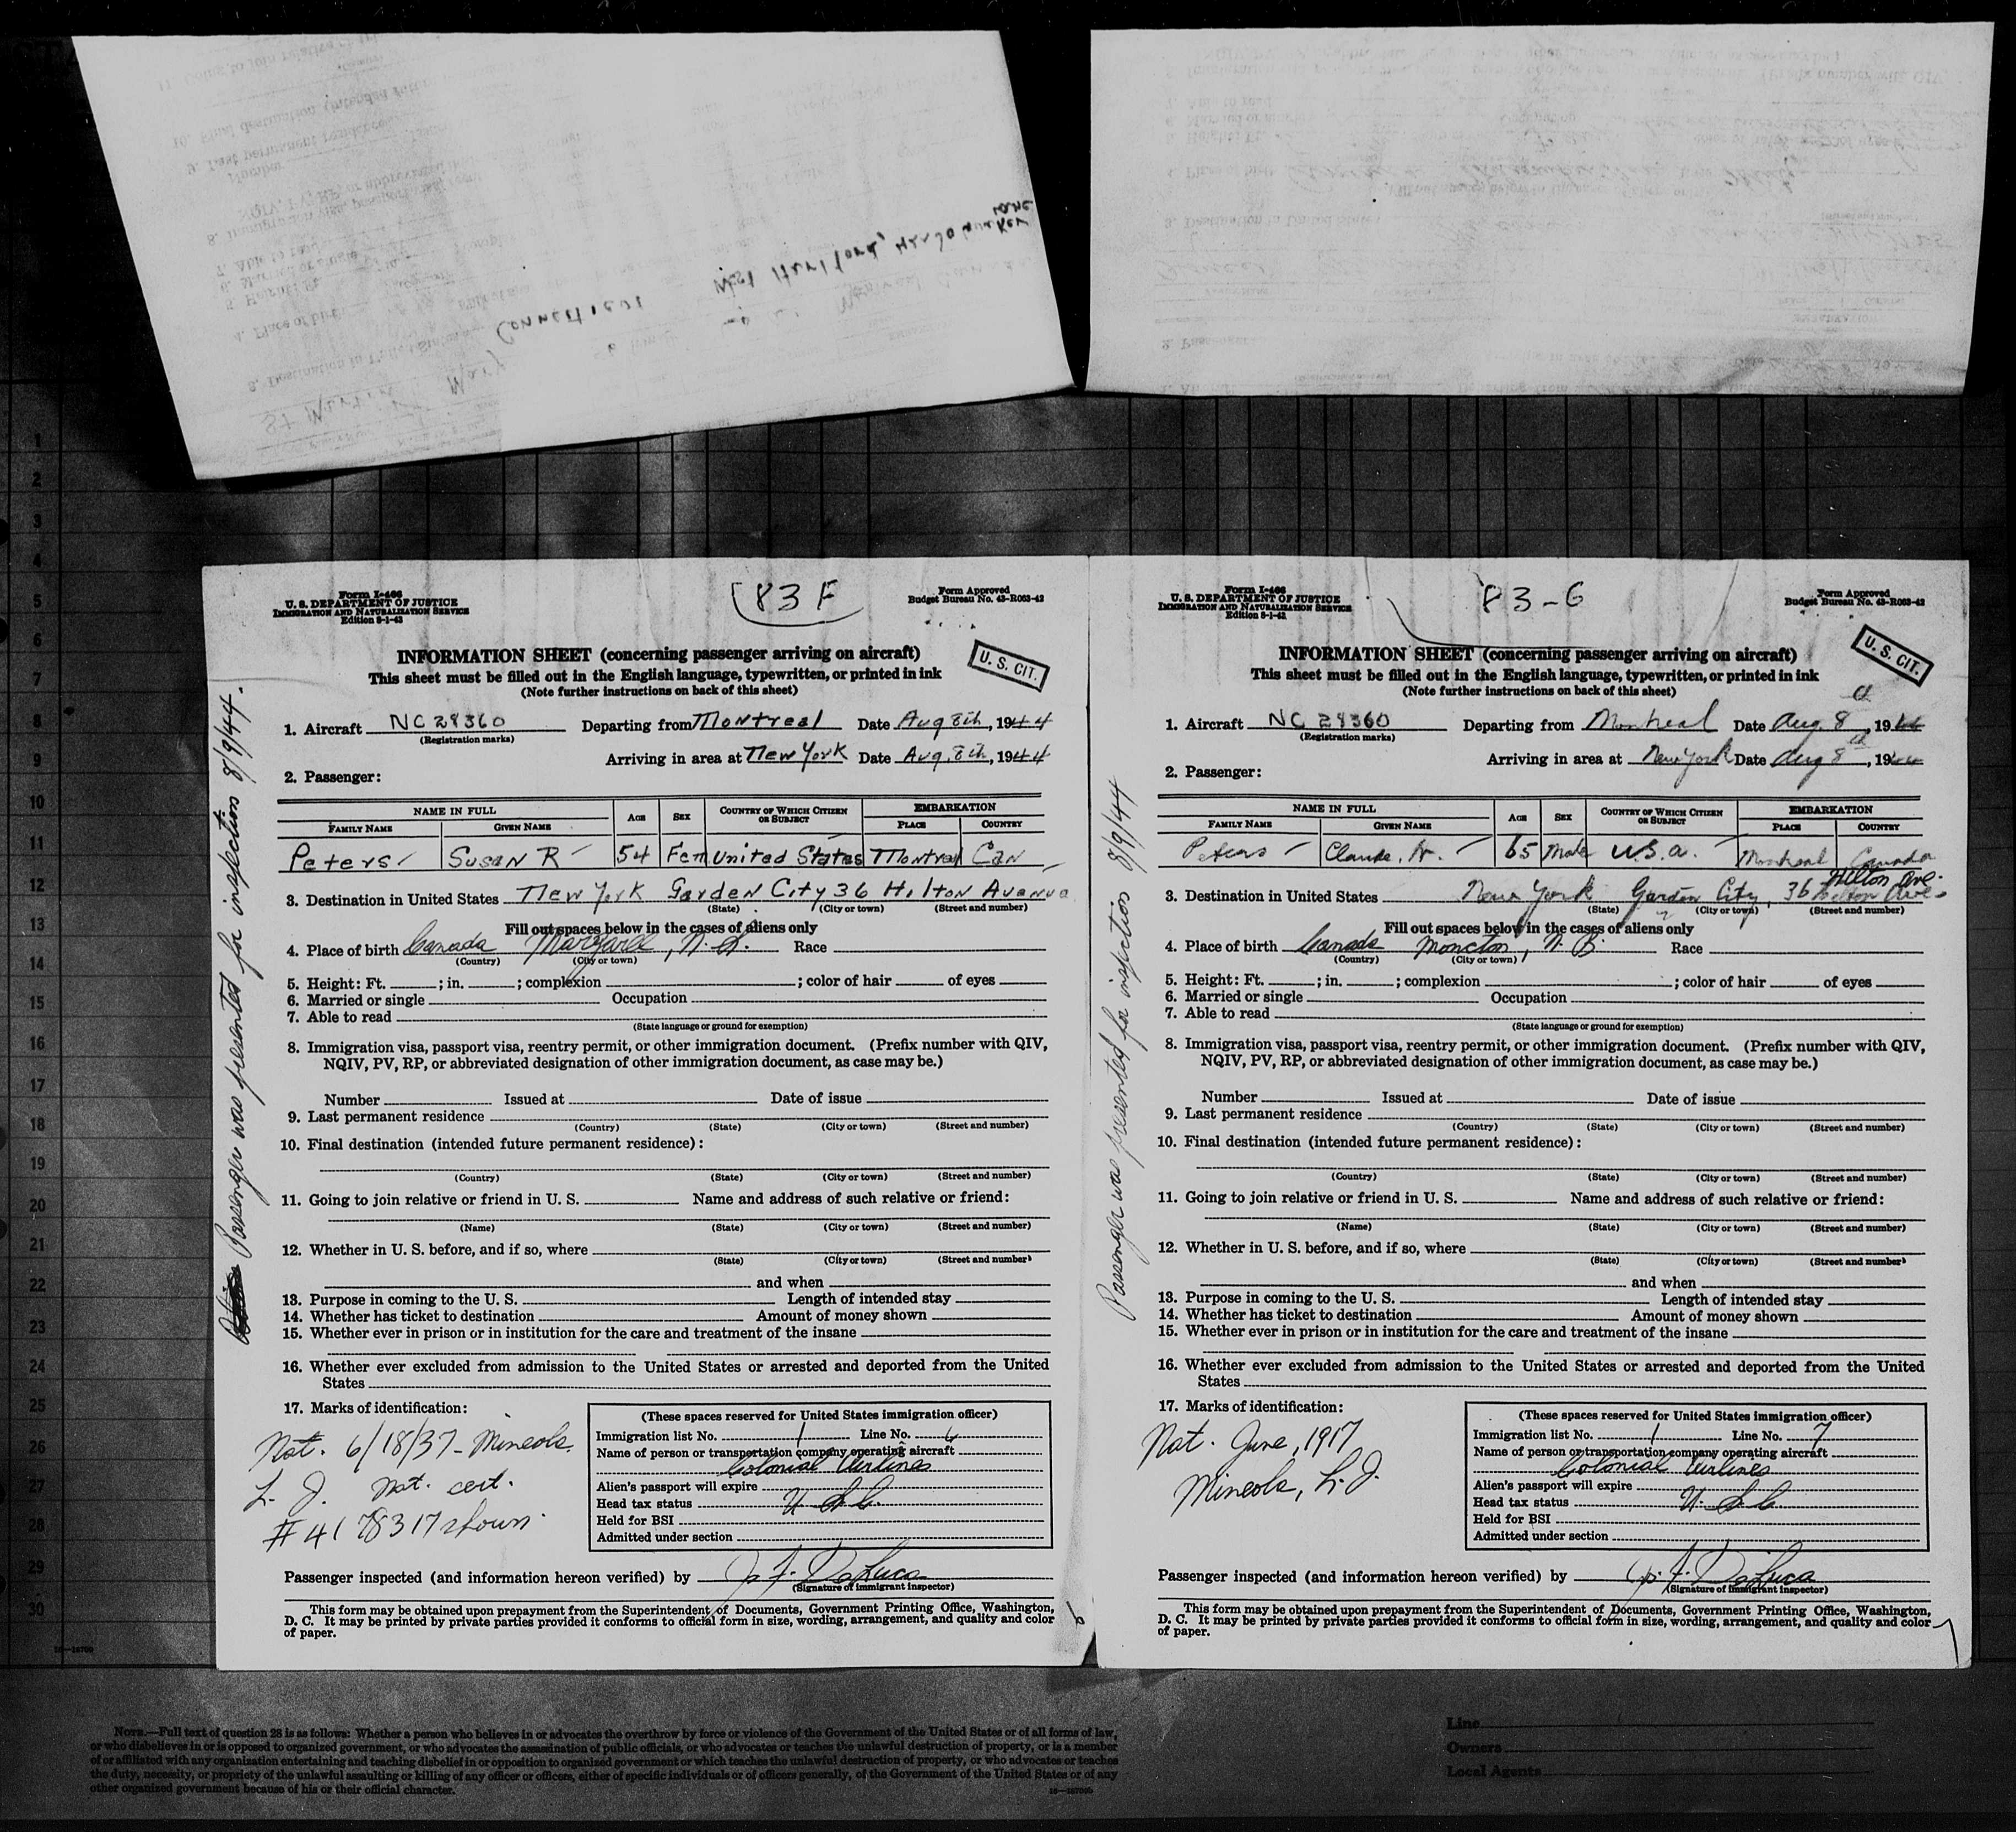 Connecticut West Hartford,
Lane
St Martin Mary
Form I-466
U. S. DEPARTMENT OF JUSTICE
IMMIGRATION AND NATURALIZATION SERVICE
Edition 8-1-43
83 F
Form Approved
Budget Bureau No. 43-R063-42
INFORMATION SHEET (concerning passenger arriving on aircraft)
U. S. CIT.
This sheet must be filled out in the English language, typewritten, or printed in ink
(Note further instructions on back of this sheet)
1. Aircraft NC 28360 Departing from Montreal Date Aug 8th, 1944
(Registration marks)
Arriving in area at New York Date Aug. 8th, 1944
2. Passenger:
NAME IN FULL AGE SEX COUNTRY OF WHICH CITIZEN OR SUBJECT EMBARKATION
FAMILY NAME GIVEN NAME PLACE COUNTRY
Peters Susan R 54 Fem United States Montreal Can
3. Destination in United States New York Garden City 36 Hilton Avenue
(State) (City or town) (Street and number)
Fill out spaces below in the cases of aliens only
4. Place of birth Canada , N. S. Race
(Country) (City or town)
5. Height: Ft. ; in. ; complexion ; color of hair of eyes
6. Married or single Occupation
7. Able to read
(State language or ground for exemption)
8. Immigration visa, passport visa, reentry permit, or other immigration document. (Prefix number with QIV,
NQIV, PV, RP, or abbreviated designation of other immigration document, as case may be.)
Number Issued at Date of issue
9. Last permanent residence
(Country) (State) (City or town) (Street and number)
10. Final destination (intended future permanent residence):
(Country) (State) (City or town) (Street and number)
11. Going to join relative or friend in U. S. Name and address of such relative or friend:
(Name) (State) (City or town) (Street and number)
12. Whether in U. S. before, and if so, where
(State) (City or town) (Street and number)
and when
13. Purpose in coming to the U. S. Length of intended stay
14. Whether has ticket to destination Amount of money shown
15. Whether ever in prison or in institution for the care and treatment of the insane
16. Whether ever excluded from admission to the United States or arrested and deported from the United
States
17. Marks of identification:
Nat. 6/18/37 - Mineola
L. I. Nat. cert.
#4178317 shown.
(These spaces reserved for United States immigration officer)
Immigration list No. 1 Line No. 6
Name of person or transportation company operating aircraft
Colonial Airlines
Alien's passport will expire
Head tax status U.S.C.
Held for BSI
Admitted under section
Passenger inspected (and information hereon verified) by J. F. DeLuca
(Signature of immigrant inspector)
This form may be obtained upon prepayment from the Superintendent of Documents, Government Printing Office, Washington,
D. C. It may be printed by private parties provided it conforms to official form in size, wording, arrangement, and quality and color
of paper.
Passenger was presented for inspection 8/9/44.
Form I-466
U. S. DEPARTMENT OF JUSTICE
IMMIGRATION AND NATURALIZATION SERVICE
Edition 8-1-43
83-G
Form Approved
Budget Bureau No. 43-R063-42
INFORMATION SHEET (concerning passenger arriving on aircraft)
U. S. CIT.
This sheet must be filled out in the English language, typewritten, or printed in ink
(Note further instructions on back of this sheet)
1. Aircraft NC 28360 Departing from Montreal Date Aug. 8th, 1944
(Registration marks)
Arriving in area at New York Date Aug 8th, 1944
2. Passenger:
NAME IN FULL AGE SEX COUNTRY OF WHICH CITIZEN OR SUBJECT EMBARKATION
FAMILY NAME GIVEN NAME PLACE COUNTRY
Peters Claude, 65 Male U.S.A. Montreal Canada
Hilton Ave.
3. Destination in United States New York Garden City, 36 Hilton Ave.
(State) (City or town) (Street and number)
Fill out spaces below in the cases of aliens only
4. Place of birth Canada Moncton, N. B. Race
(Country) (City or town)
5. Height: Ft. ; in. ; complexion ; color of hair of eyes
6. Married or single Occupation
7. Able to read
(State language or ground for exemption)
8. Immigration visa, passport visa, reentry permit, or other immigration document. (Prefix number with QIV,
NQIV, PV, RP, or abbreviated designation of other immigration document, as case may be.)
Number Issued at Date of issue
9. Last permanent residence
(Country) (State) (City or town) (Street and number)
10. Final destination (intended future permanent residence):
(Country) (State) (City or town) (Street and number)
11. Going to join relative or friend in U. S. Name and address of such relative or friend:
(Name) (State) (City or town) (Street and number)
12. Whether in U. S. before, and if so, where
(State) (City or town) (Street and number)
and when
13. Purpose in coming to the U. S. Length of intended stay
14. Whether has ticket to destination Amount of money shown
15. Whether ever in prison or in institution for the care and treatment of the insane
16. Whether ever excluded from admission to the United States or arrested and deported from the United
States
17. Marks of identification:
Nat. June, 1917
Mineola, L. I.
(These spaces reserved for United States immigration officer)
Immigration list No. 1 Line No. 7
Name of person or transportation company operating aircraft
Colonial Airlines
Alien's passport will expire
Head tax status U.S.C.
Held for BSI
Admitted under section
Passenger inspected (and information hereon verified) by J. F. DeLuca
(Signature of immigrant inspector)
This form may be obtained upon prepayment from the Superintendent of Documents, Government Printing Office, Washington,
D. C. It may be printed by private parties provided it conforms to official form in size, wording, arrangement, and quality and color
of paper.
Passenger was presented for inspection 8/9/44
1
2
3
4
5
6
7
8
9
10
11
12
13
14
15
16
17
18
19
20
21
22
23
24
25
26
27
28
29
30
NOTE.—Full text of question 28 is as follows: Whether a person who believes in or advocates the overthrow by force or violence of the Government of the United States or of all forms of law,
or who disbelieves in or is opposed to organized government, or who advocates the assassination of public officials, or who advocates or teaches the unlawful destruction of property, or is a member
of or affiliated with any organization entertaining and teaching disbelief in or opposition to organized government or which teaches the unlawful destruction of property, or who advocates or teaches
the duty, necessity, or propriety of the unlawful assaulting or killing of any officer or officers, either of specific individuals or of officers generally, of the Government of the United States or of any
other organized government because of his or their official character.
Line
Owners
Local Agents